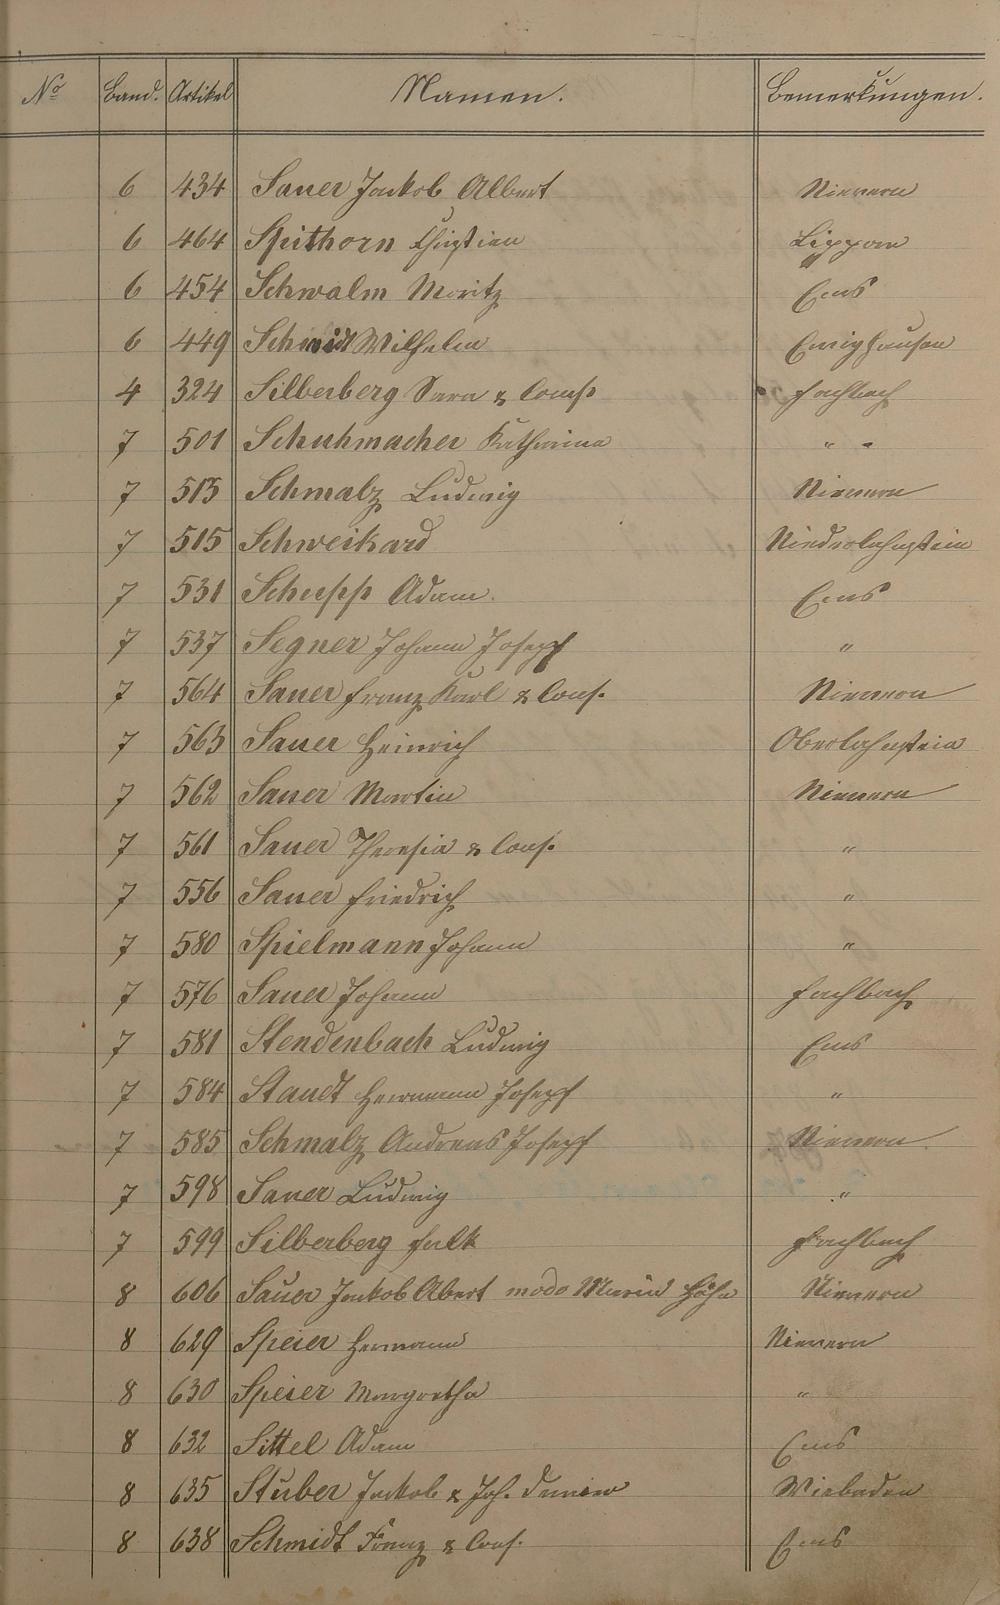 No Band. Artikel Namen. Bemerkungen.
6 434 Sauer Jackob Albert Nievern
6 464 Spithorn Christian Lipporn
6 454 Schwalm Moritz Ems
6 449 Schmidt Wilhelm
4 324 Silberberg Sara & Cons. Fachbach
7 501 Schuhmacher Katharina " "
7 513 Schmalz Ludwig Nievern
7 515 Schweikard Niederlahnstein
7 531 Schupp Adam. Ems
7 537 Segner Johann Joseph "
7 564 Sauer Franz Karl & Cons. Nievern
7 563 Sauer Heinrich Oberlahnstein
7 562 Sauer Martin Nievern
7 561 Sauer Theresia & Cons. "
7 556 Sauer Friedrich "
7 580 Spielmann Johann "
7 576 Sauer Johann Fachbach
7 581 Stendenbach Ludwig Ems
7 584 Staudt Hermann Joseph "
7 585 Schmalz Andreas Joseph Nievern
7 598 Sauer Ludwig "
7 599 Silberberg Falk Fachbach
8 606 Sauer Jackob Abert modo Maria Nievern
8 629 Speier Hermann Nievern
8 630 Speier Margretha "
8 632 Sittel Adam Ems
8 635 Stuber Jackob & Joh. Wisbaden
8 638 Schmidt Franz & Cons. Ems